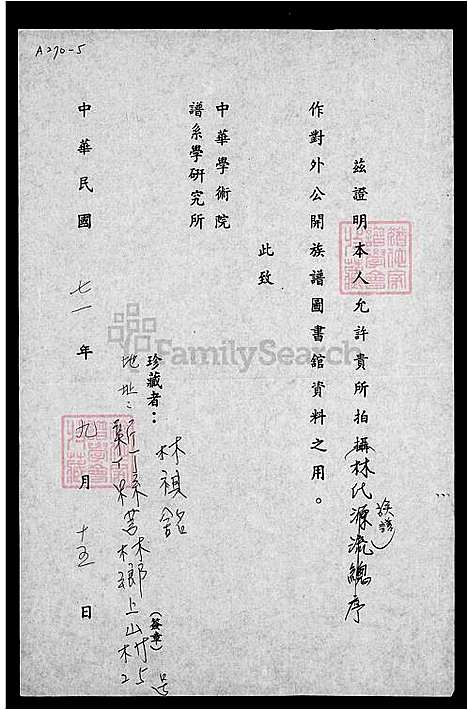 A270-5
茲證明本人允許貴所拍攝林氏源流總序
族譜
作對外公開族譜圖書館資料之用。
此致
中華學術院
譜系學研究所
珍藏者：林祺
（簽章）
地址：新竹縣芎林鄉上山村25号
中華民國七一年九月十五日
FamilySearch